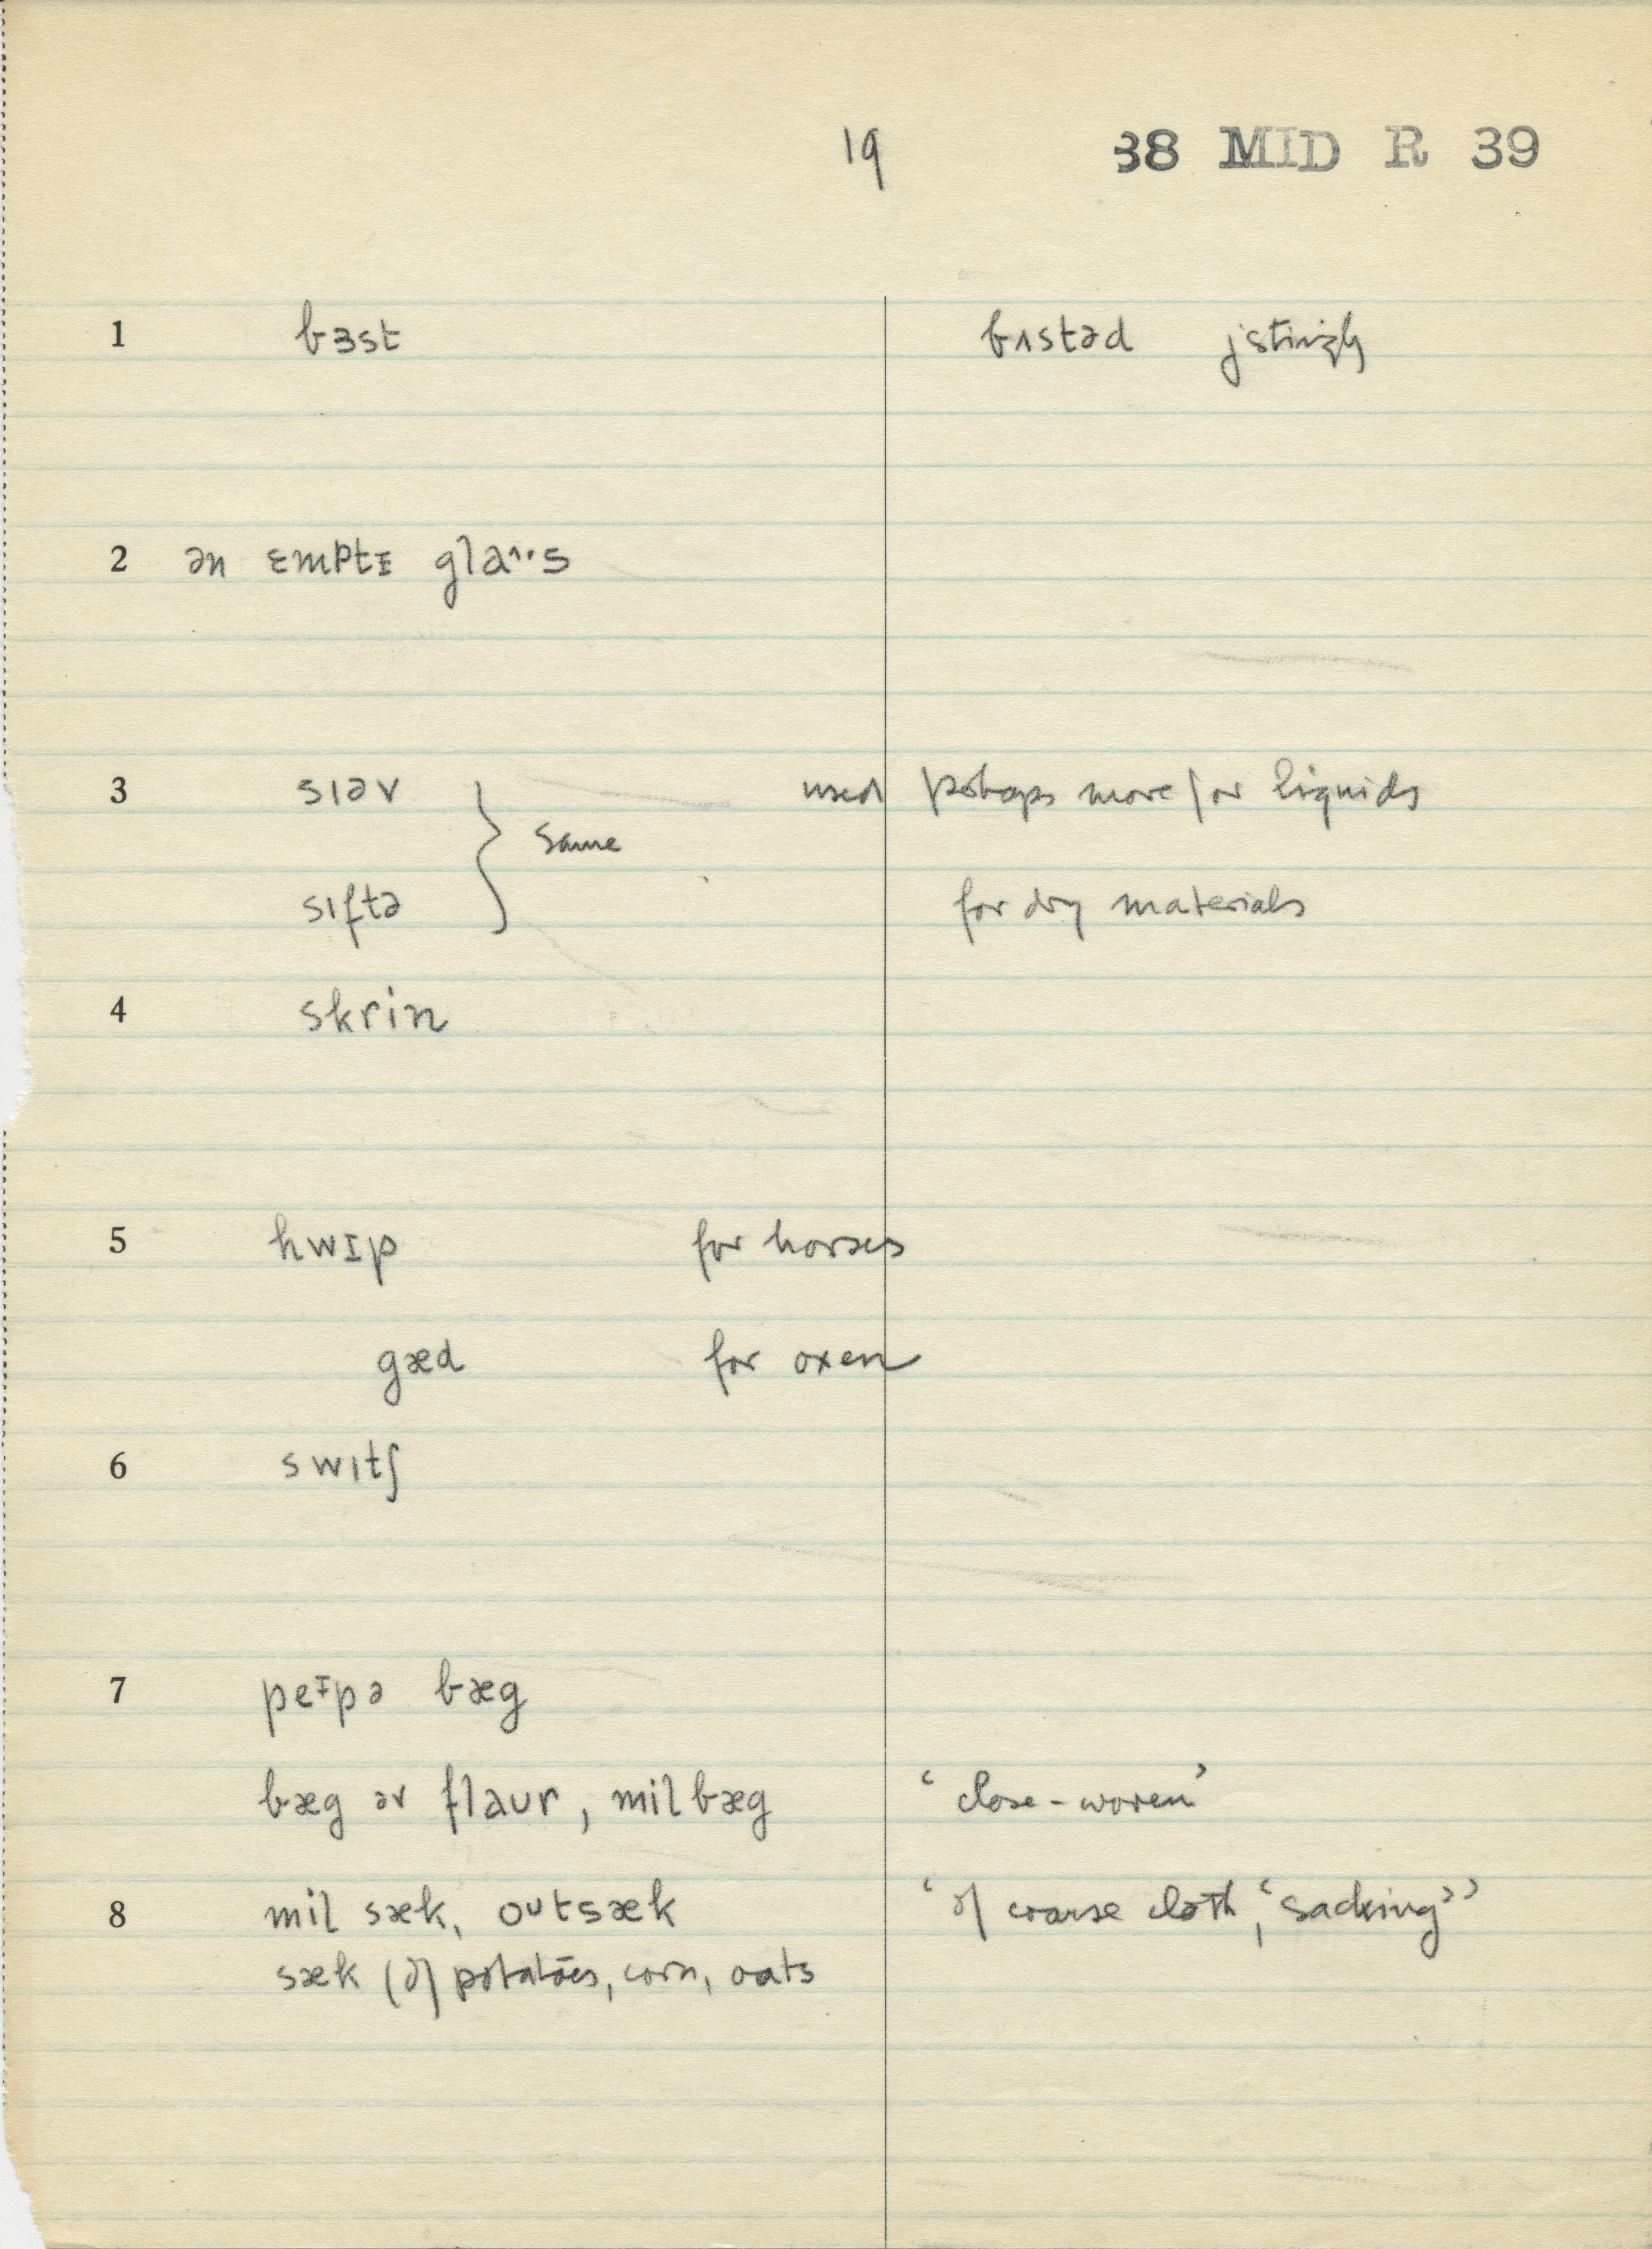 19 38 MID R 39
1 bɜst bʌstəd jestingly
2 ən ɛmptɪ glaˑˑs
3 sɪəv } same used perhaps more for liquids
sɪftə for dry materials
4 skrin
5 hwɪp for horses
gæd for oxen
6 swɪtʃ
7 peᶦpə bæg
bæg əv flaur, milbæg ‘close-woven’
8 mil sæk, oᴜtsæk ‘of coarse cloth, ‘sacking’’
sæk (of) potatoes, corn, oats